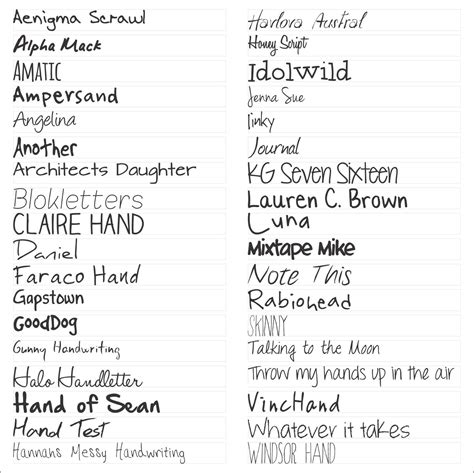 Aenigma Scrawl
Alpha Mack
AMATIC
Ampersand
Angelina
Another
Architects Daughter
Blokletters
CLAIRE HAND
Daniel
Faraco Hand
Gapstown
GoodDog
Gunny Handwriting
Halo Handletter
Hand of Sean
Hand Test
Hannahs Messy Handwriting
Harlova Austral
Honey Script
Idolwild
Jenna Sue
Jinky
Journal
KG Seven Sixteen
Lauren C. Brown
Luna
Mixtape Mike
Note This
Rabiohead
SKINNY
Talking to the Moon
Throw my hands up in the air
VincHand
Whatever it takes
WINDSOR HAND